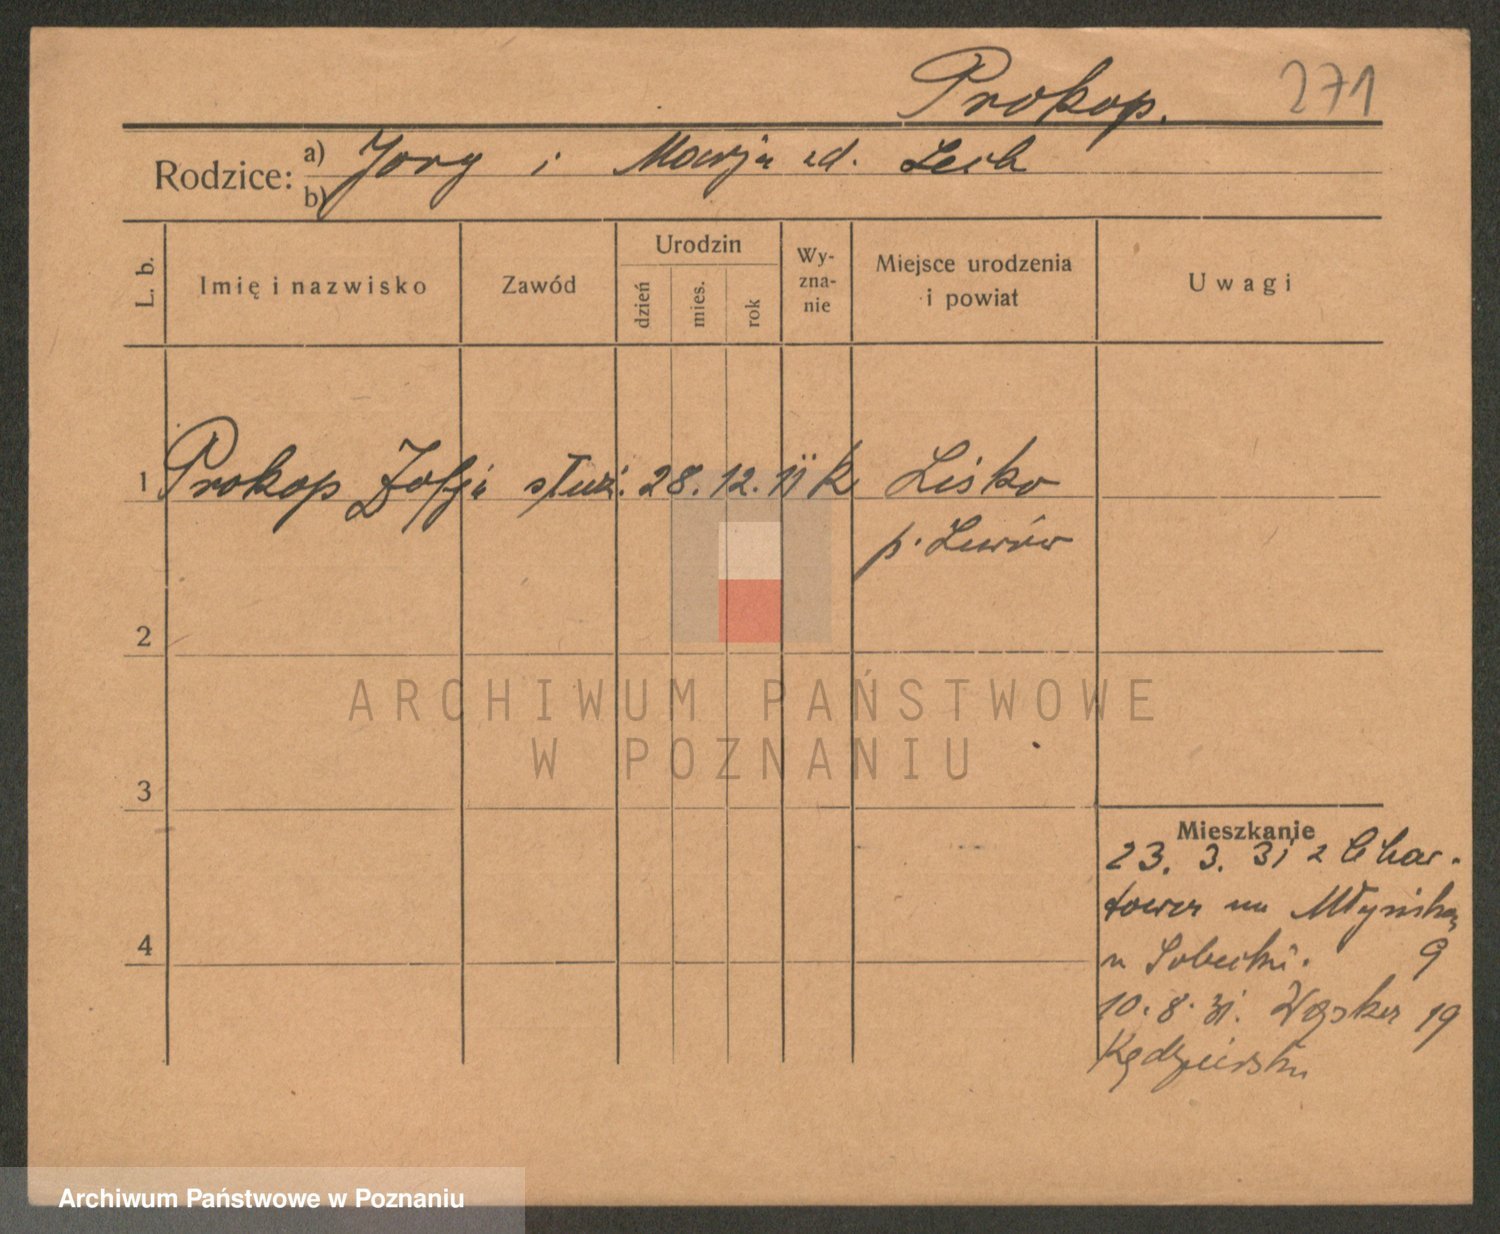 Prokop. 271
Rodzice: a) Jerzy i Marja zd. Lech
b)
L. b. Imię i nazwisko Zawód Urodzin dzień mies. rok Wy-zna-nie Miejsce urodzenia i powiat Uwagi
1 Prokop Zofja służ. 28. 12. 11 k Lisko
p. Lwów
2
ARCHIWUM PAŃSTWOWE
W POZNANIU
3
Mieszkanie
23. 3. 31 z Char-
towa na Młyńską
u Sobecki. 9
4
10. 8. 31. Wąska 19
Kędzierski
Archiwum Państwowe w Poznaniu